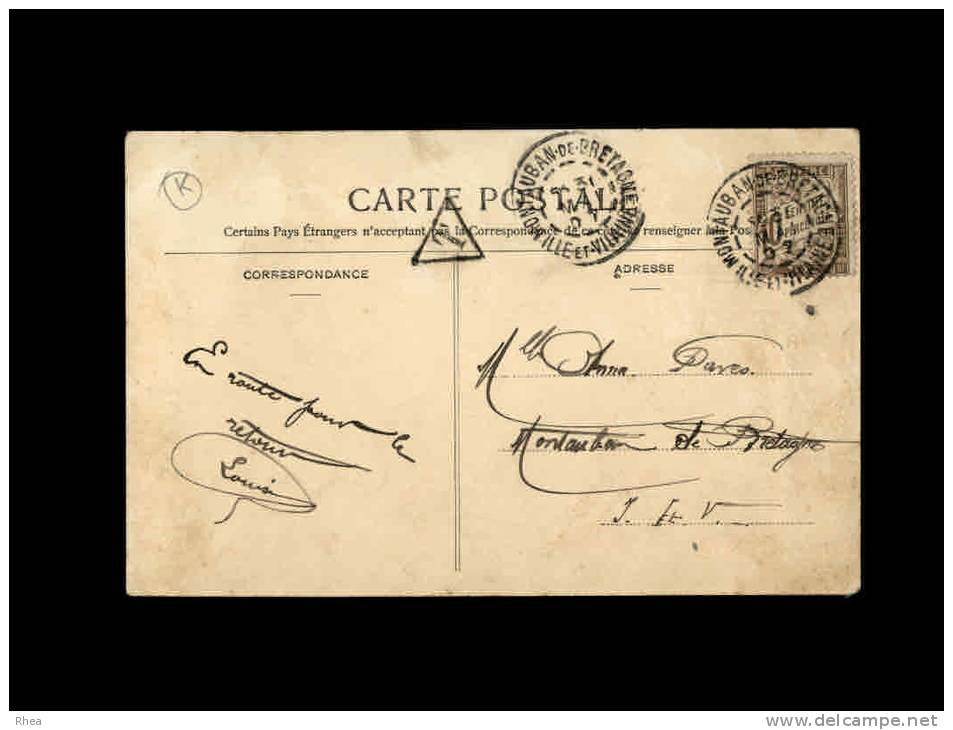 K
CARTE POSTALE
Certains Pays Étrangers n'acceptant pas la Correspondance de ce côté, se renseigner à la Pos
T
MONTAUBAN-DE-BRETAGNE
ILLE-ET-VILAINE
31
MONTAUBAN-DE-BRETAGNE
ILLE-ET-VILAINE
CORRESPONDANCE
ADRESSE
En route pour le
retour
Louis
Mlle Anna Daves.
Montauban de Bretagne
I. et V.
Rhea
www.delcampe.net